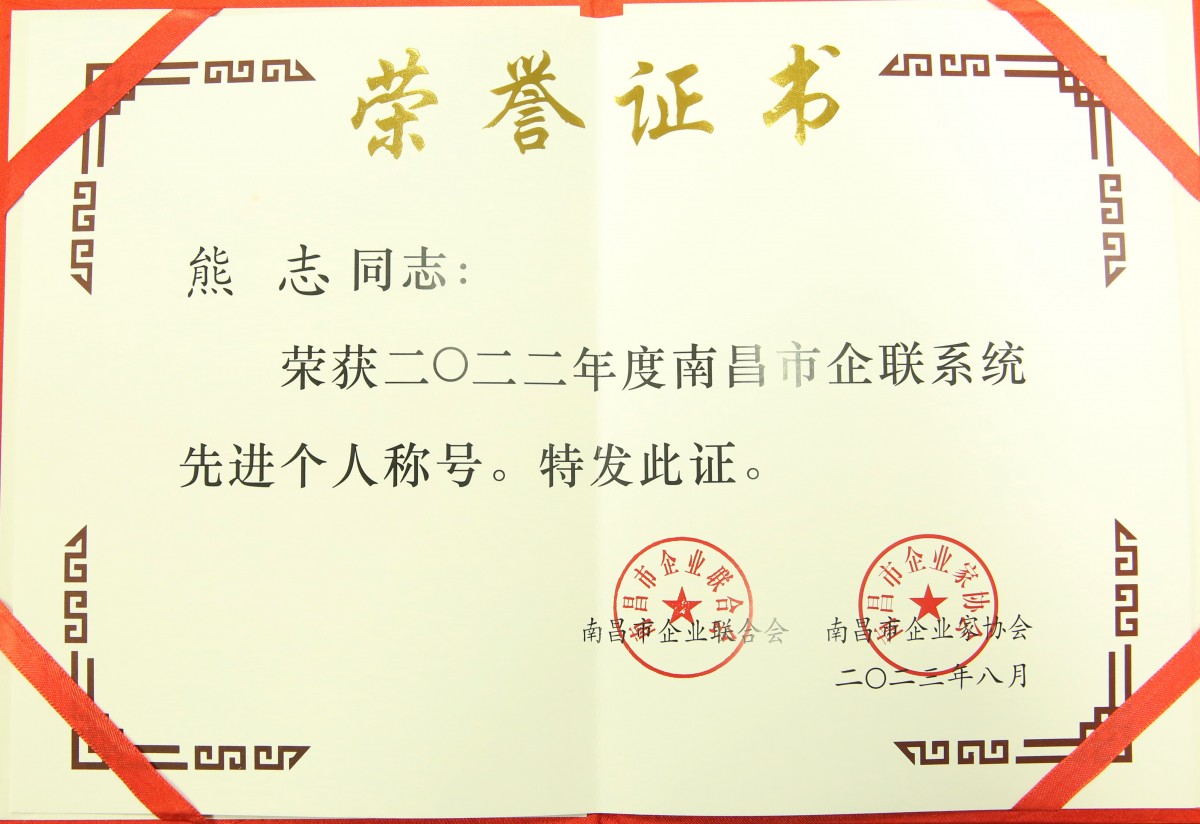 荣誉证书
熊 志 同志：
荣获二〇二二年度南昌市企联系统
先进个人称号。特发此证。
南昌市企业联合会
南昌市企业家协会
南昌市企业联合会 南昌市企业家协会
二〇二三年八月